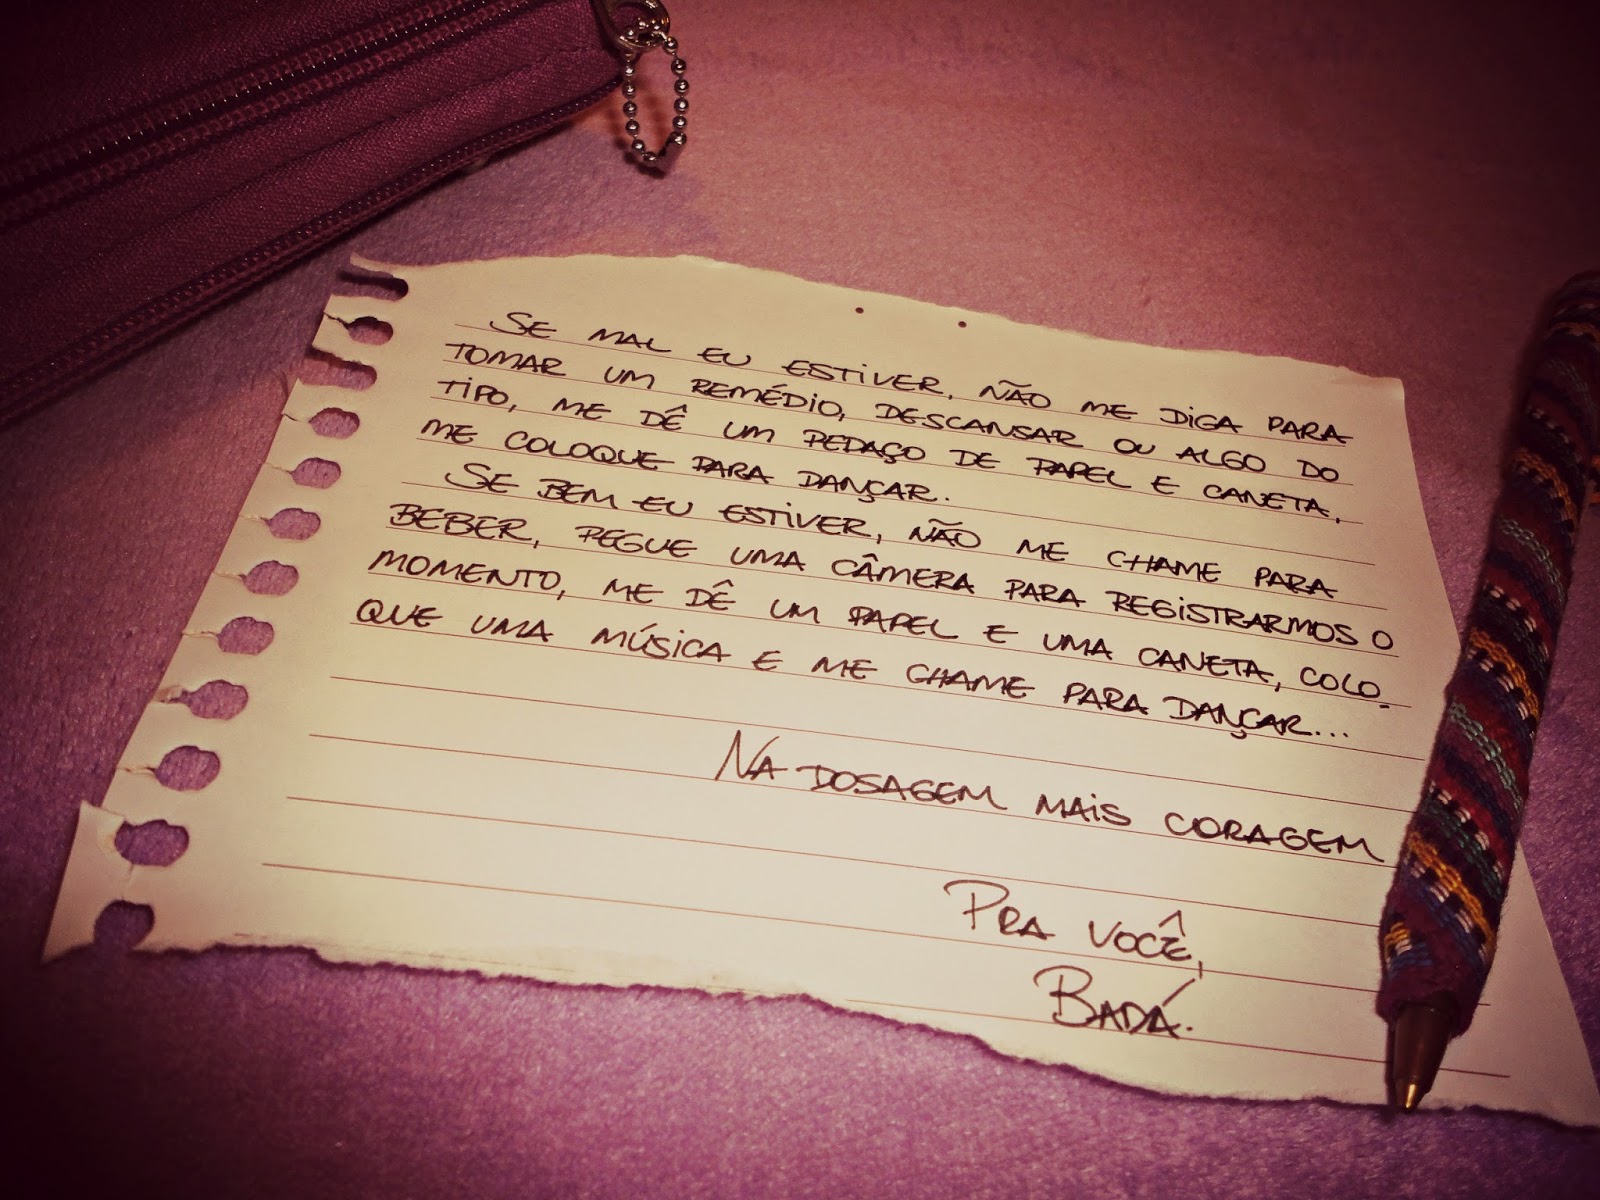 SE MAL EU ESTIVER, NÃO ME DIGA PARA
TOMAR UM REMÉDIO, DESCANSAR OU ALGO DO
TIPO, ME DÊ UM PEDAÇO DE PAPEL E CANETA,
ME COLOQUE PARA DANÇAR.
SE BEM EU ESTIVER, NÃO ME CHAME PARA
BEBER, PEGUE UMA CÂMERA PARA REGISTRARMOS O
MOMENTO, ME DÊ UM PAPEL E UMA CANETA, COLO-
QUE UMA MÚSICA E ME CHAME PARA DANÇAR...
NA DOSAGEM MAIS CORAGEM
PRA VOCÊ,
BADÁ.